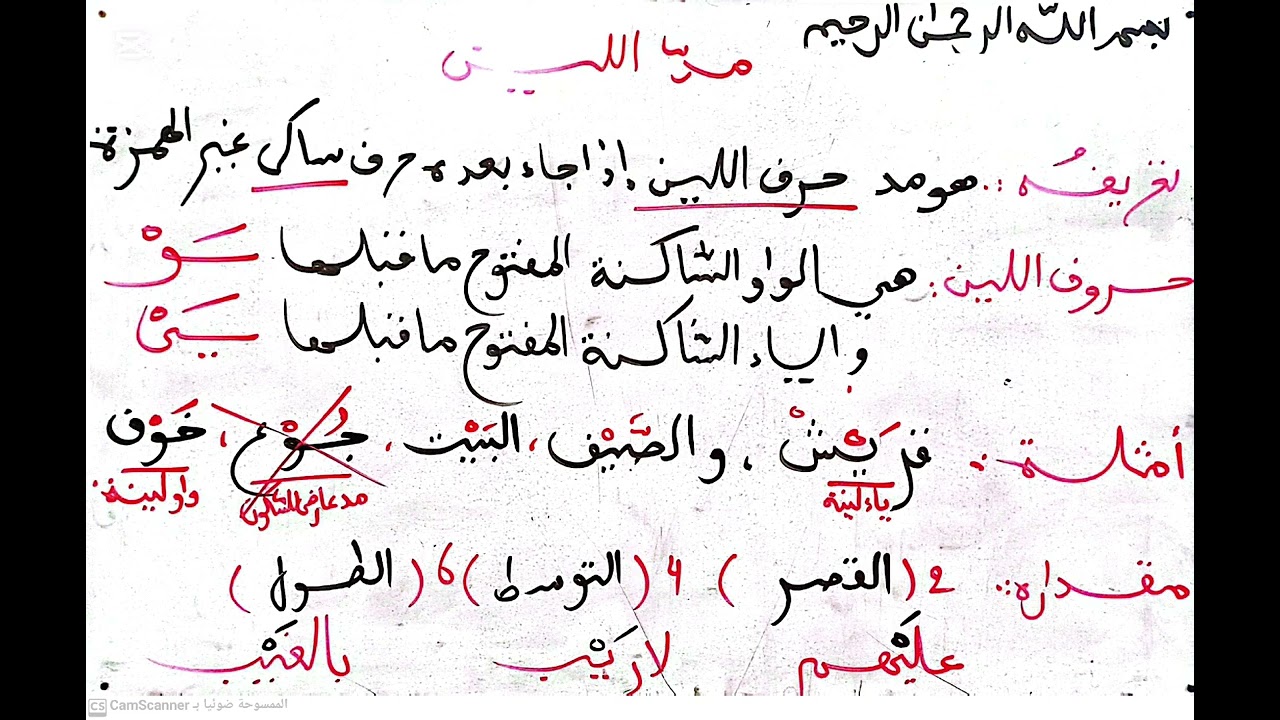 بسم الله الرحمن الرحيم
مد اللين
تعريفُه : هو مد حرف اللين إذا جاء بعده حرف ساكن غير الهمزة
حروف اللين : هي الواو السّاكنة المفتوح ما قبلها ـَوْ
والياء السّاكنة المفتوح ما قبلها ـَيْ
أمثلة : قُرَيْشْ ، والصَّيْف ، البَيْت ، جُوْع ، خَوْف
ياء لينة مد عارض للسّكون واو لينة
مقداره : 2 (القصر) 4 (التوسط) 6 (الطول)
عليْهم لا رَيْب بالغَيْب
CS CamScanner الممسوحة ضوئيا بـ